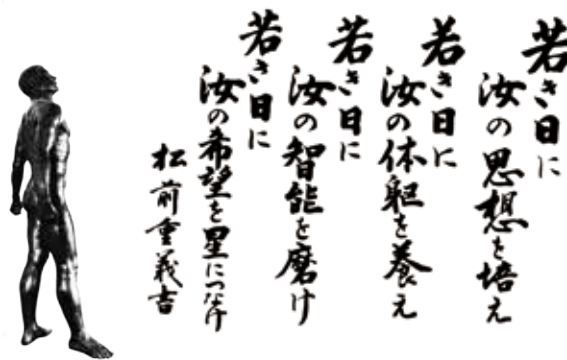 若き日に
汝の思想を培え
若き日に
汝の体躯を養え
若き日に
汝の智能を磨け
若き日に
汝の希望を星につなげ
松前重義書